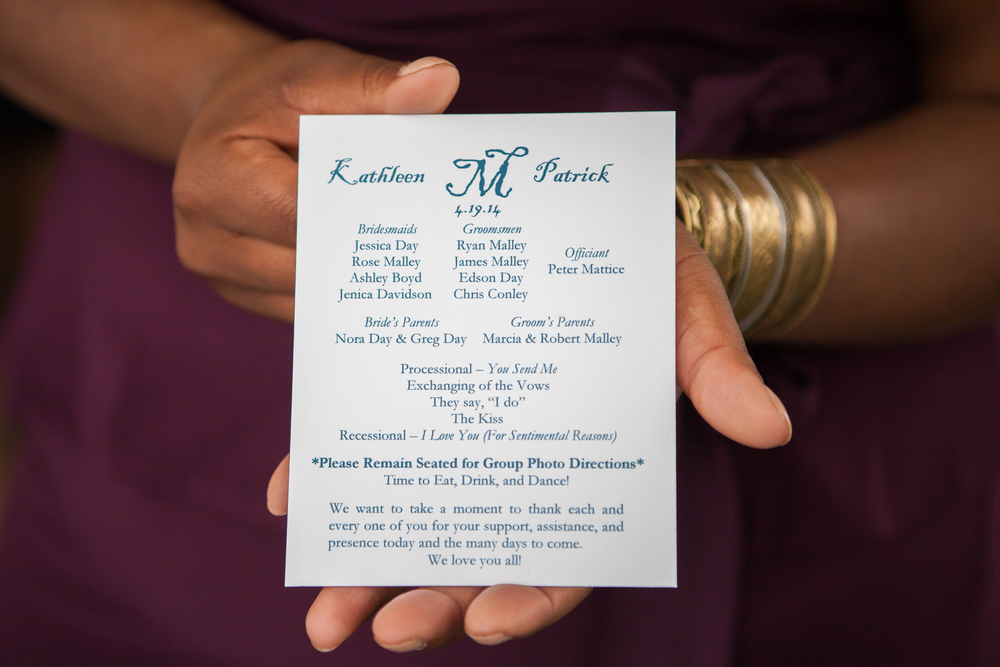 Kathleen M Patrick
4.19.14
Bridesmaids
Jessica Day
Rose Malley
Ashley Boyd
Jenica Davidson
Groomsmen
Ryan Malley
James Malley
Edson Day
Chris Conley
Officiant
Peter Mattice
Bride's Parents
Nora Day & Greg Day
Groom's Parents
Marcia & Robert Malley
Processional – You Send Me
Exchanging of the Vows
They say, “I do”
The Kiss
Recessional – I Love You (For Sentimental Reasons)
*Please Remain Seated for Group Photo Directions*
Time to Eat, Drink, and Dance!
We want to take a moment to thank each and
every one of you for your support, assistance, and
presence today and the many days to come.
We love you all!